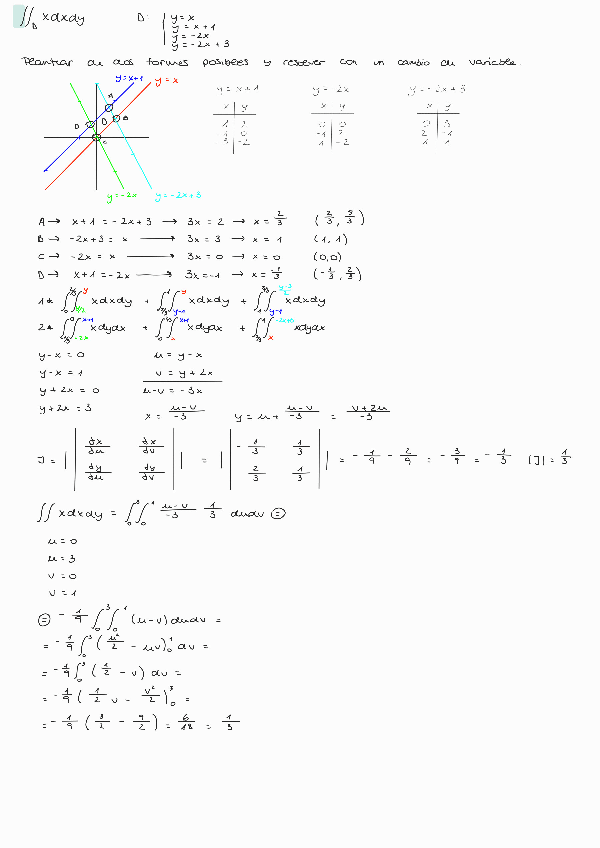 ∬_D xdxdy   D: { y=x
y=x+1
y=-2x
y=-2x+3
Plantear de dos formas posibles y resolver con un cambio de variable.
y=x+1   y=x
A
D   D   B
C
y=-2x   y=-2x+3
y=x+1   y=2x   y=-2x+3
x | y   x | y   x | y
0 | 0   0 | 3
-1 | 2   2 | -1
1 | -2   1 | 1
A → x+1 = -2x+3 → 3x = 2 → x = 2/3   (2/3, 5/3)
B → -2x+3 = x → 3x = 3 → x = 1   (1,1)
C → -2x = x → 3x = 0 → x = 0   (0,0)
D → x+1 = -2x → 3x = -1 → x = -1/3   (-1/3, 2/3)
1* ∫∫ xdxdy + ∫∫ xdxdy + ∫∫ xdxdy
2* ∫∫ xdydx + ∫∫ xdydx + ∫∫ xdydx
y-x = 0   u = y-x
y-x = 1   v = y+2x
y+2x = 0   u-v = -3x
y+2x = 3   x = (u-v)/-3   y = u + (u-v)/-3 = (v+2u)/3
J = | | dx/du dx/dv | | = | | -1/3 1/3 | | = -1/9 - 2/9 = -3/9 = -1/3   |J| = 1/3
dy/du dy/dv   2/3 1/3
∬ xdxdy = ∫_0^3 ∫_0^1 (u-v)/-3 1/3 dudv =
u=0
u=3
v=0
v=1
= -1/9 ∫_0^3 ∫_0^1 (u-v) dudv =
= -1/9 ∫_0^3 (u²/2 - uv)_0^1 dv =
= -1/9 ∫_0^3 (1/2 - v) dv =
= -1/9 (1/2 v - v²/2)_0^3 =
= -1/9 (3/2 - 9/2) = 6/18 = 1/3